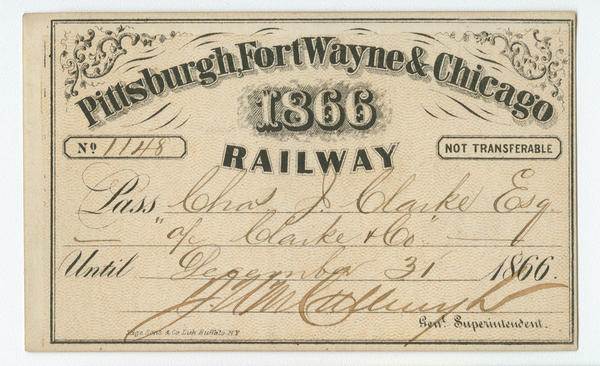 Pittsburgh, Fort Wayne & Chicago
1866
Nº 1148
RAILWAY
NOT TRANSFERABLE
Pass Chas J. Clarke Esq.
"of Clarke & Co"
Until December 31 1866.
Genl. Superintendent.
Sage, Sons & Co. Lith. Buffalo, N.Y.